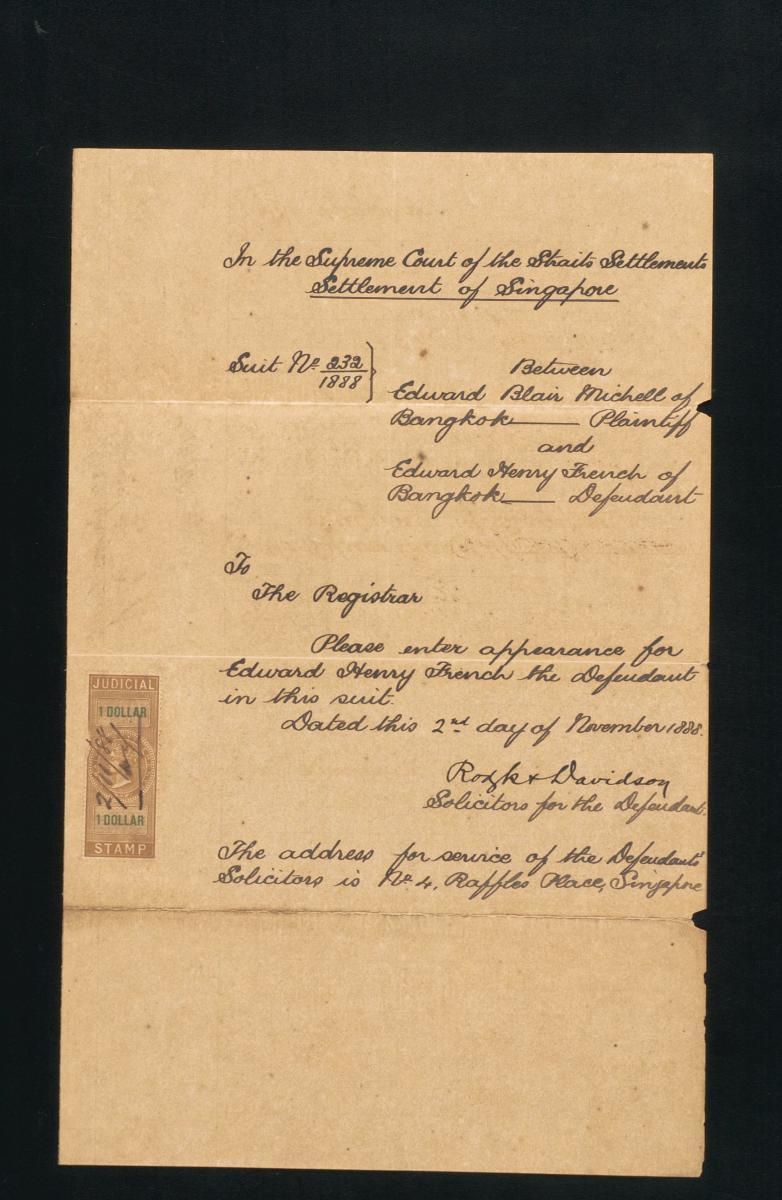 In the Supreme Court of the Straits Settlements
Settlement of Singapore
Suit No. 232/1888
Between
Edward Blair Michell of
Bangkok — Plaintiff
and
Edward Henry French of
Bangkok — Defendant
To
The Registrar
Please enter appearance for
Edward Henry French the Defendant
in this suit.
Dated this 2nd day of November 1888.
& Davidson
Solicitors for the Defendant.
The address for service of the Defendants'
Solicitors is No. 4, Raffles Place, Singapore
JUDICIAL
1 DOLLAR
2/11/88
1 DOLLAR
STAMP